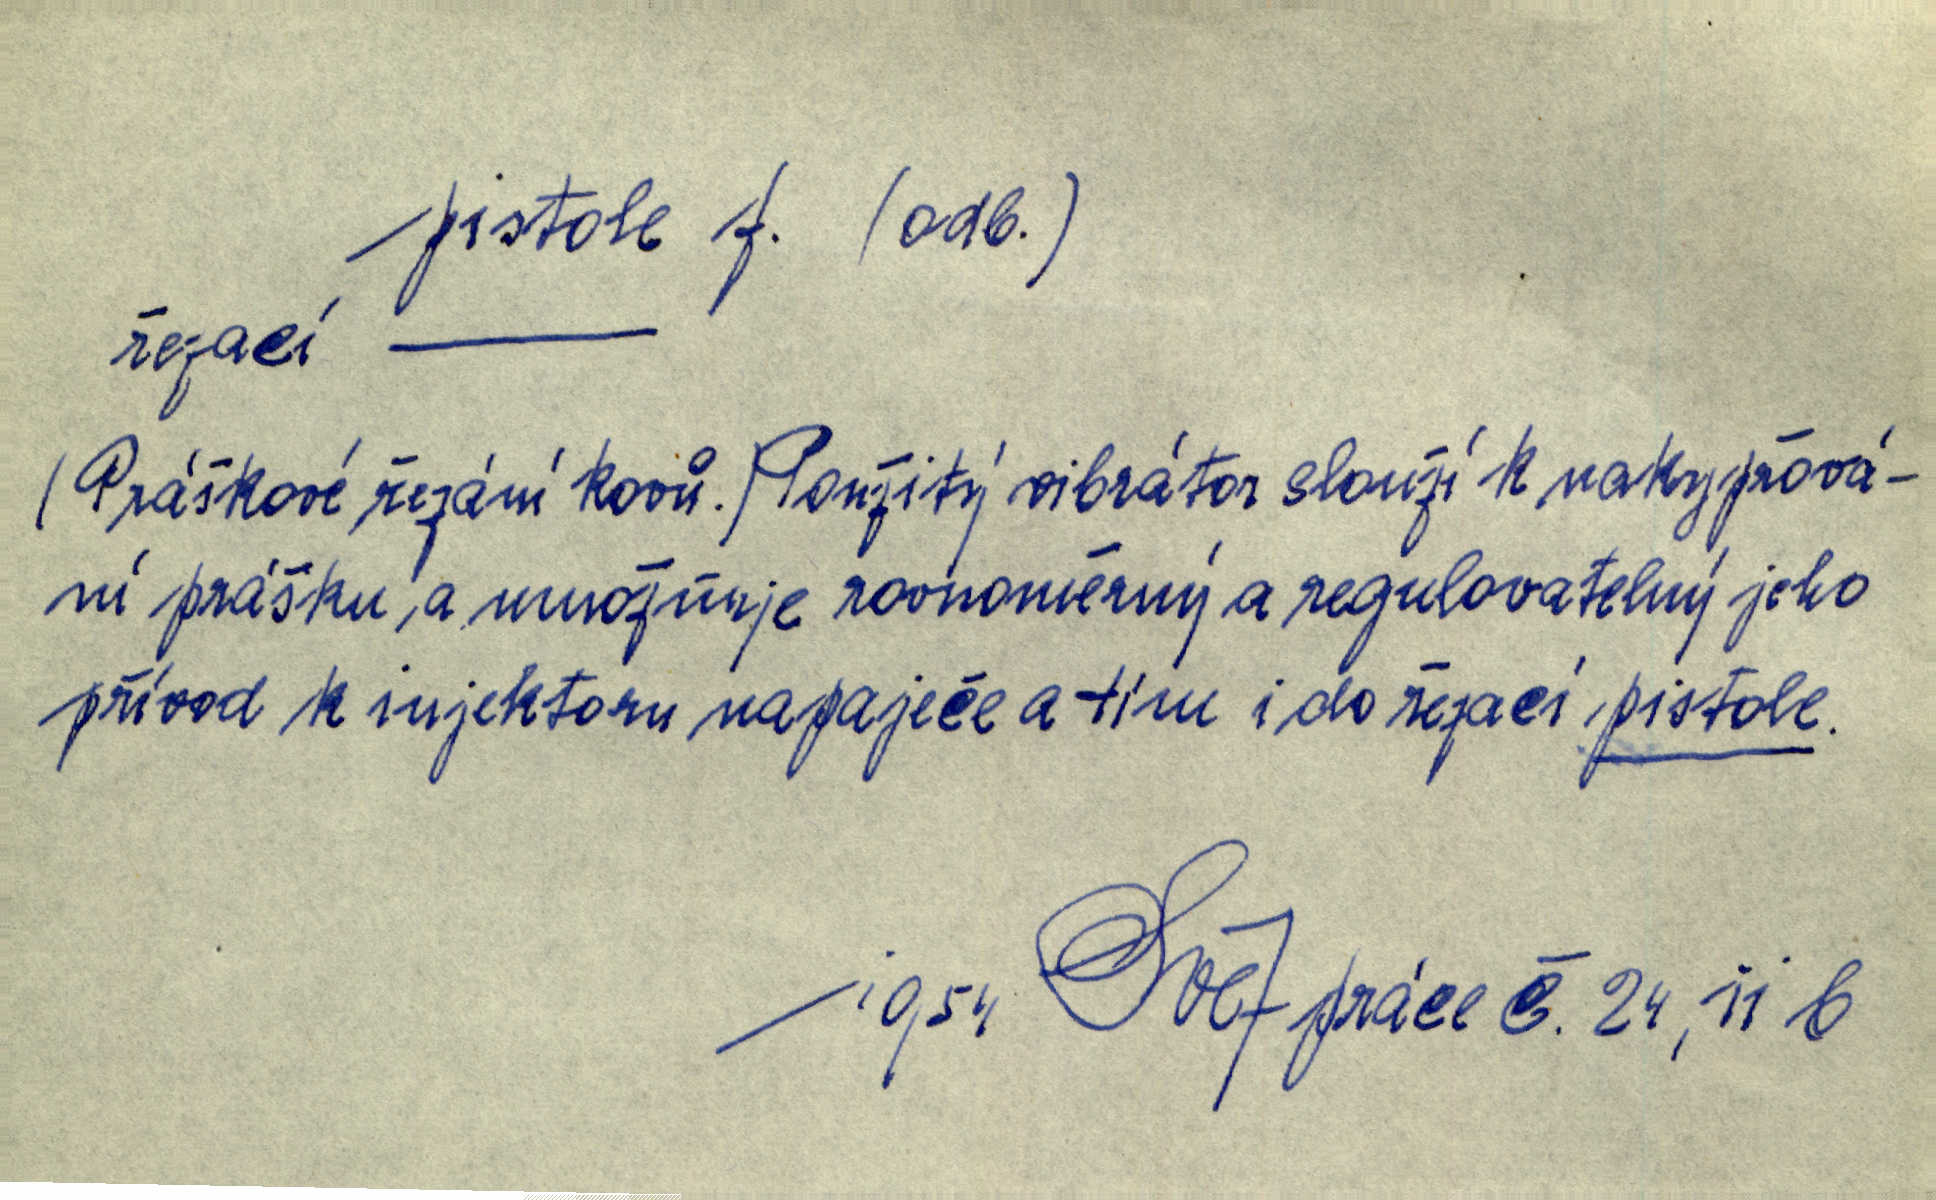 pistole f. (odb.)
řezací ———
(Práškové řezání kovů.) Použitý vibrátor slouží k nakyprová-
ní prášku, a umožňuje rovnoměrný a regulovatelný jeho
přívod k injektoru napaječe a tím i do řezací pistole.
1954 práce č. 24, ii b